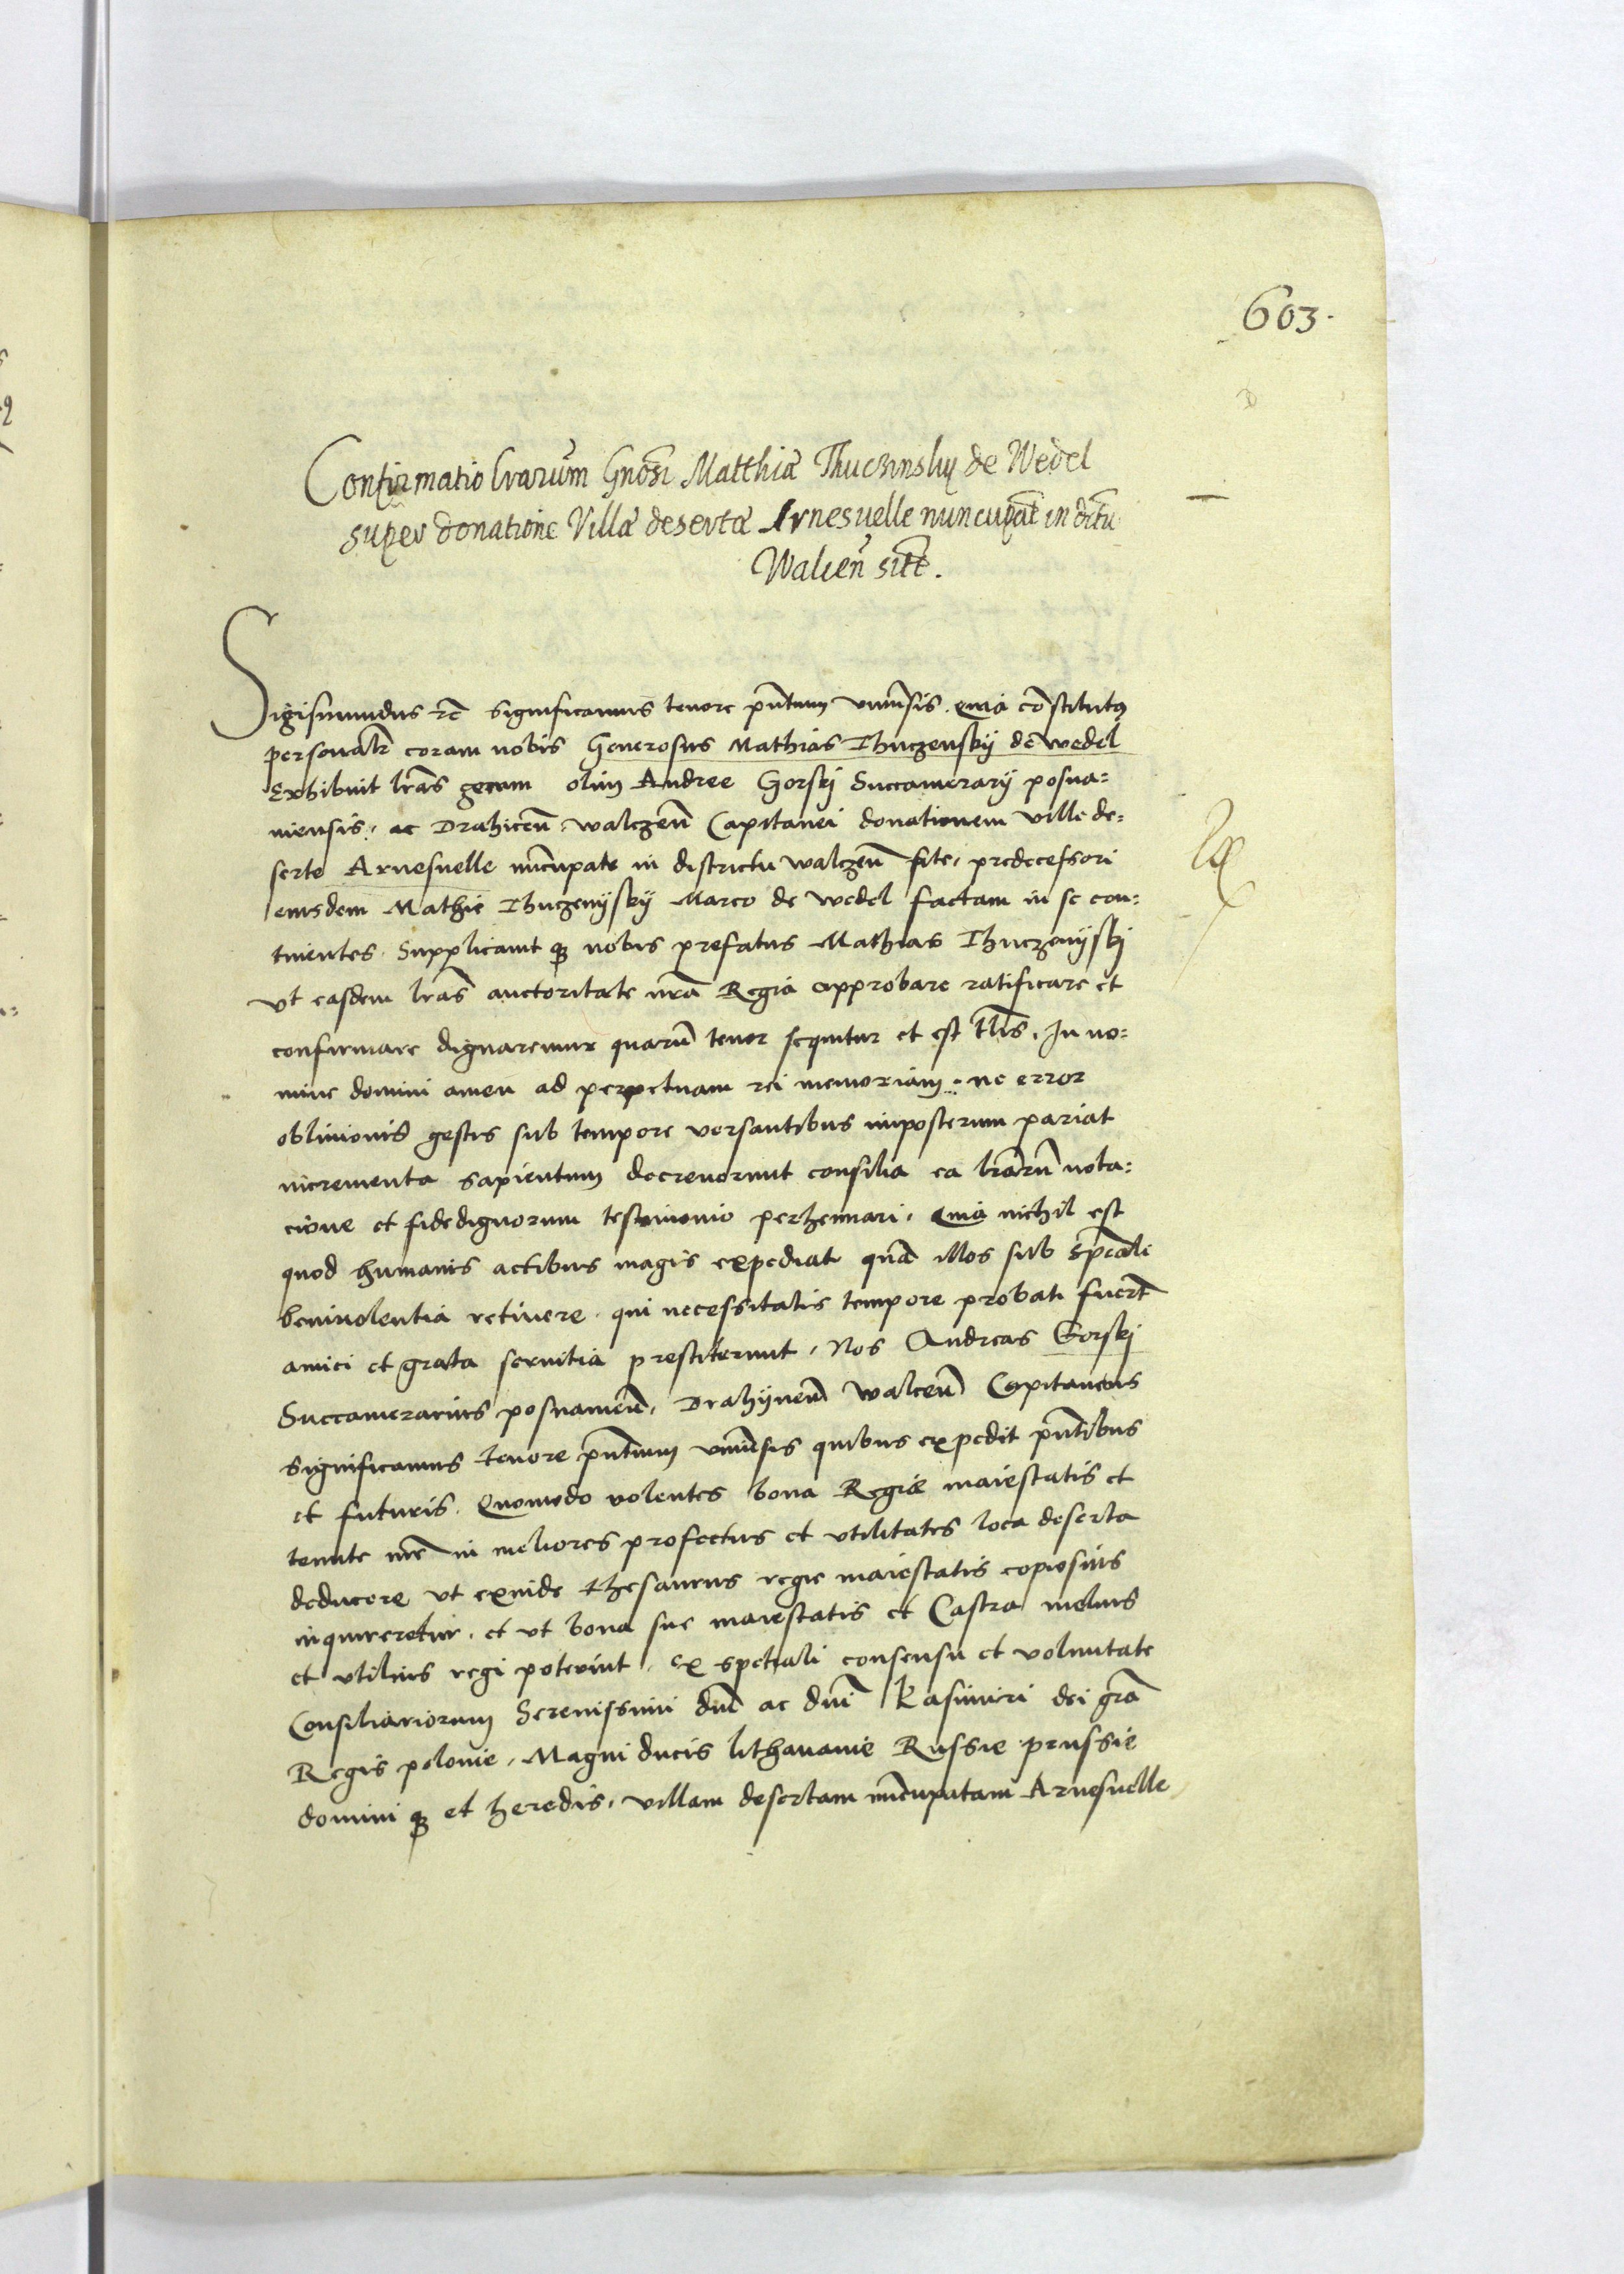 603.
Confirmatio lrarum Gnosi Matthiæ Thuczinsky de Wedel
super donatione Villæ desertæ Arnesuelle nuncupat in dictu
Walcen sitæ.
Sigismundus rc significamus tenore pntium vniuersis. quia constitutus
personalr coram nobis Generosus Mathias Thuczensky de wedel
Exhibuit lras gerum olim Andree Gorski Succamerarij posna=
niensis, ac Drahicen, walczen Capitanei donationem ville de=
serte Arnesuelle nucupate in districtu walczen site, predecessori
eiusdem Mathie Thuczenysky Marco de wedel factam in se con=
tinentes. Supplicauit q nobis prefatus Mathias Thuczenyski
vt easdem lras auctoritate nra Regia approbare ratificare et
confirmare dignaremur quaru tenor sequitur et est tlis. In no=
mine domini amen ad perpetuam rei memoriam. ne error
obliuionis gestis sub tempore versantibus imposterum pariat
incrementa sapientum decreuerunt consilia ea lraru nota=
cione et fidedignorum testimonio perhennari, quia nichil est
quod humanis actibus magis expediat qua illos sub speali
beniuolentia retinere. qui necessitatis tempore probati fuert
amici et grata seruitia prestiterunt, Nos Andreas Gorski
Succamerarius posnanien, Drahynen walcen Capitaneus
significamus tenore pntium vniuersis quibus expedit pntibus
et futuris. Quomodo volentes bona Regiæ maiestatis et
tenute nre in meliores profectus et vtilitates loca deserta
deducere vt exinde thesaurus regie maiestatis copiosius
inquireretur. et vt bona sue maiestatis et Castra melius
et vtilius regi poterint, ex spetiali consensu et voluntate
Consiliariorum Serenissimi dni ac dni Kasimiri dei gra
Regis polonie, Magni ducis lithuanie Russie prussie
domini q et heredis, villam desertam nucupatam Arnesuelle